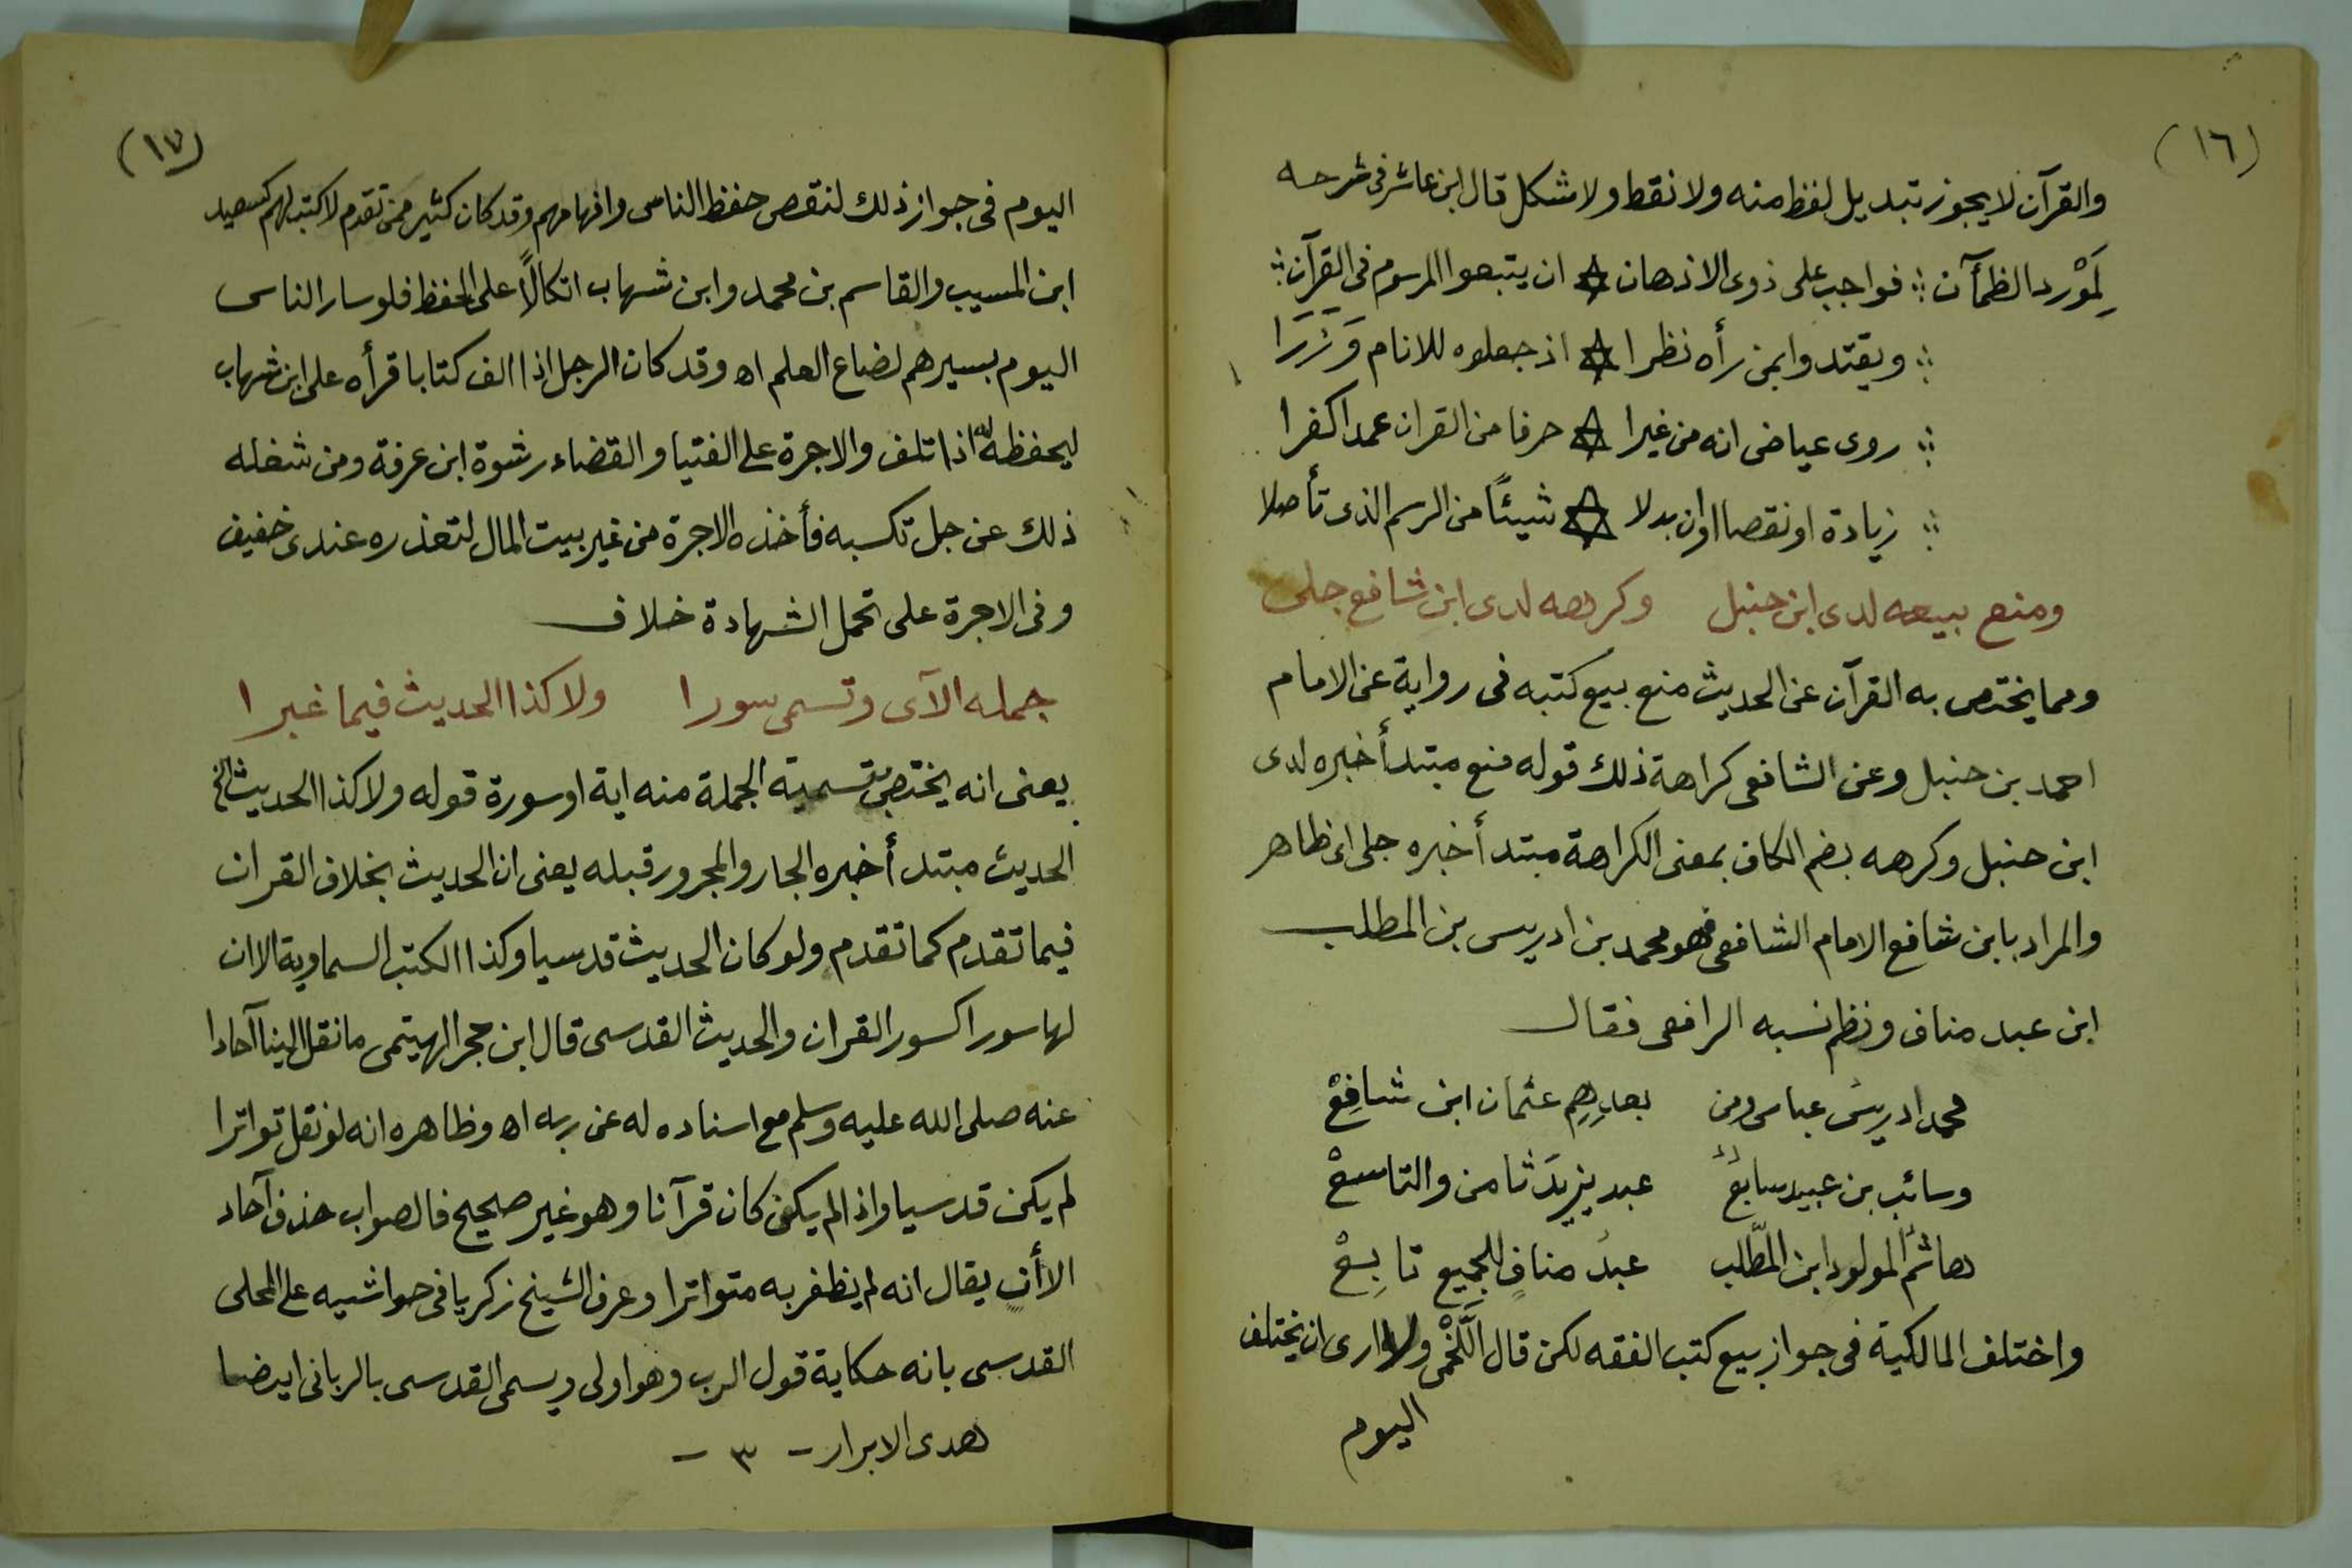 (١٦)
والقرآن لا يجوز تبديل لفظ منه ولا نقط ولا شكل قال ابن عاشر فى شرحه
لِمَوْرد الظمآن ؞ فواجب على ذوى الاذهان ☆ ان يتبعوا المرسوم فى القرآن ؞
؞ ويقتدوا بمن رأه نظرا ☆ اذ جعلوه للانام وَزَرَا
؞ روى عياض انه من غيرا ☆ حرفا من القران عمدا كفرا
؞ زيادة او نقصا او ان بدلا ☆ شيئًا من الرسم الذى تأصلا
ومنع بيعه لدى ابن حنبل وكرهه لدى ابن شافع جلى
ومما يختص به القرآن عن الحديث منع بيع كتبه فى رواية عن الامام
احمد بن حنبل وعن الشافعى كراهة ذلك قوله منع مبتدأ خبره لدى
ابن حنبل وكرهه بضم الكاف بمعنى الكراهة مبتدأ خبره جلى اى ظاهر
والمراد بابن شافع الامام الشافعى فهو محمد بن ادريس بن المطلب
ابن عبد مناف ونظم نسبه الرافعى فقال
محمد ادريسُ عباس ومن بعدِهِم عثمان ابن شافِعْ
وسائب بن عبيد سابعُ عبد يزيدَ ثامن والتاسعْ
هاشمُ المولود ابن المطّلب عبدُ منافٍ للجميع تابِعْ
واختلف المالكية فى جواز بيع كتب الفقه لكن قال اللَّخْمى ولا ارى ان يختلف
اليوم
(١٧)
اليوم فى جواز ذلك لنقص حفظ الناس وافهامهم وقد كان كثير ممن تقدم لا كتب لهم كسعيد
ابن المسيب والقاسم بن محمد وابن شهاب اتكالًا على الحفظ فلو سار الناس
اليوم بسيرهم لضاع العلم اه وقد كان الرجل اذا الف كتابا قرأه على ابن شهاب
ليحفظه له اذا تلف والاجرة على الفتيا والقضاء رشوة ابن عرفة ومن شغله
ذلك عن جل تكسبه فأخذه الاجرة من غير بيت المال لتعذره عندى خفيف
وفى الاجرة على تحمل الشهادة خلاف
جمله الآى وتسمى سورا ولا كذا الحديث فيما غبرا
يعنى انه يختص بتسمية الجملة منه اية او سورة قوله ولا كذا الحديث الخ
الحديث مبتدأ خبره الجار والمجرور قبله يعنى ان الحديث بخلاف القران
فيما تقدم كما تقدم ولو كان الحديث قدسيا وكذا الكتب السماوية الا ان
لها سورا كسور القران والحديث القدسى قال ابن حجر الهيتمى ما نقل الينا آحادا
عنه صلى الله عليه وسلم مع اسناده له عن ربه اه وظاهره انه لو نقل تواترا
لم يكن قدسيا واذا لم يكن كان قرآنا وهو غير صحيح فالصواب حذف آحاد
الا أن يقال انه لم يظفر به متواترا وعرف الشيخ زكريا فى حواشيه على المحلى
القدسى بانه حكاية قول الرب وهو اولى ويسمى القدسى بالربانى ايضا
هدى الابرار - ٣ -